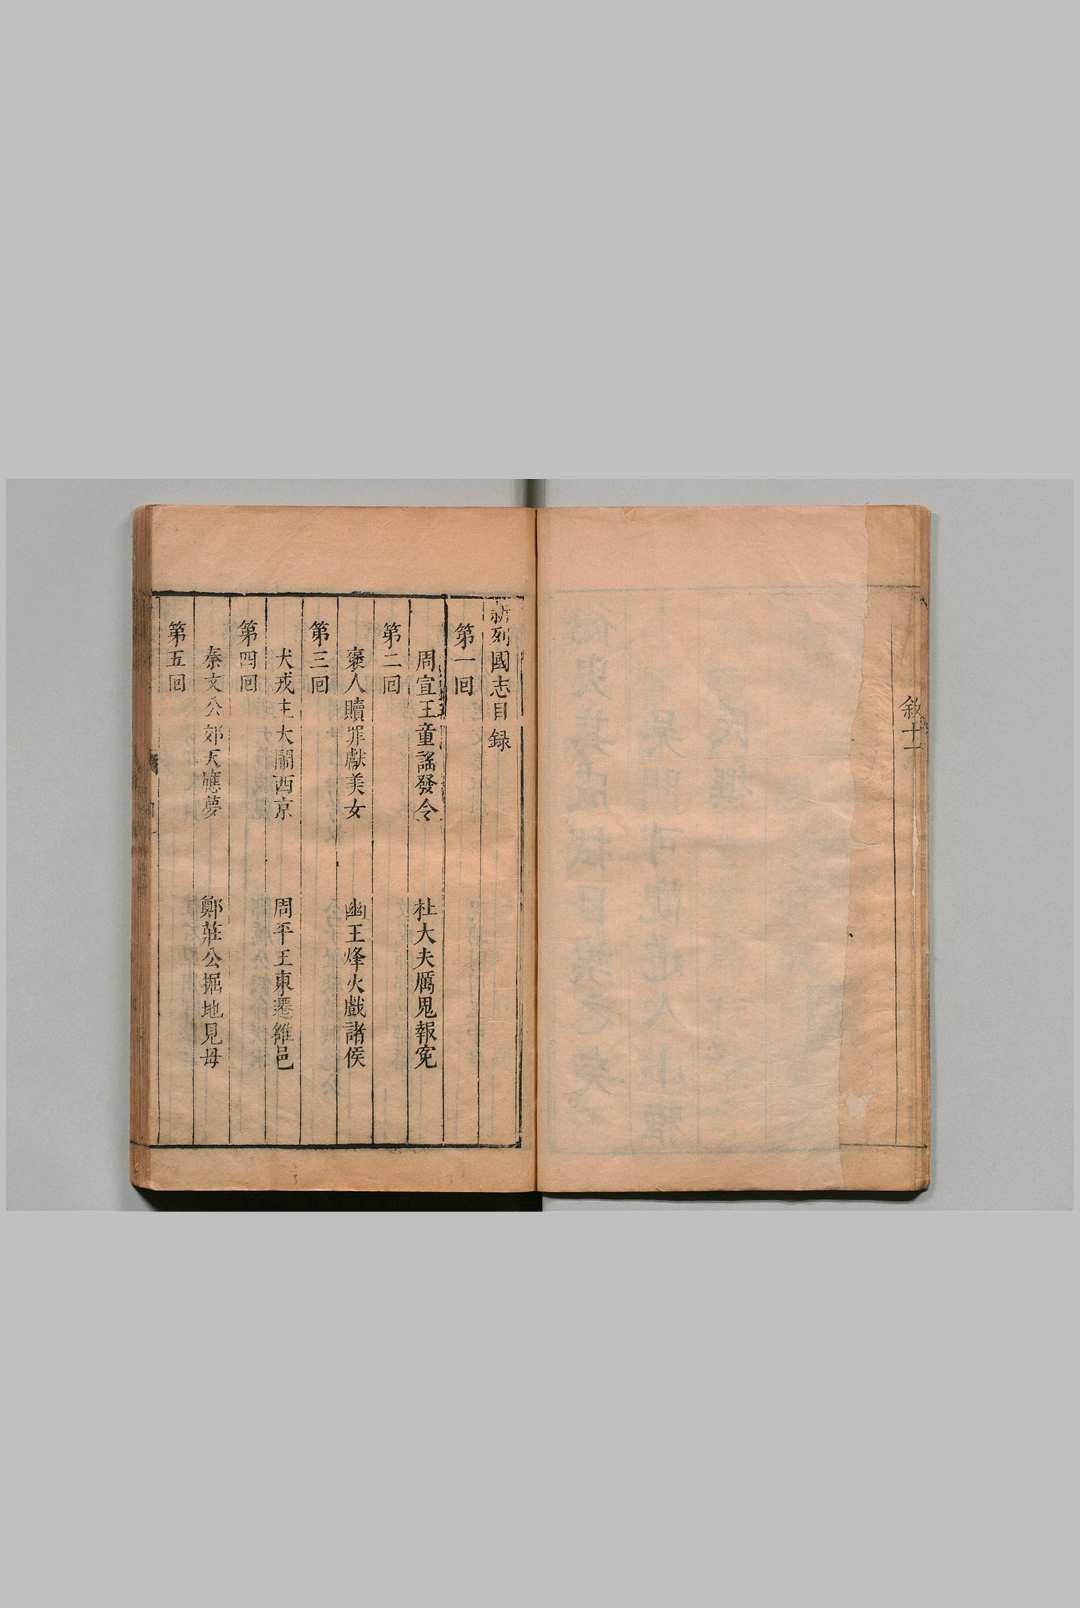 敘十一
新列國志目錄
第一回
周宣王童謠發令　杜大夫厲鬼報冤
第二回
褒人贖罪獻美女　幽王烽火戲諸侯
第三回
犬戎主大鬧西京　周平王東遷雒邑
第四回
秦文公郊天應夢　鄭莊公掘地見母
第五回